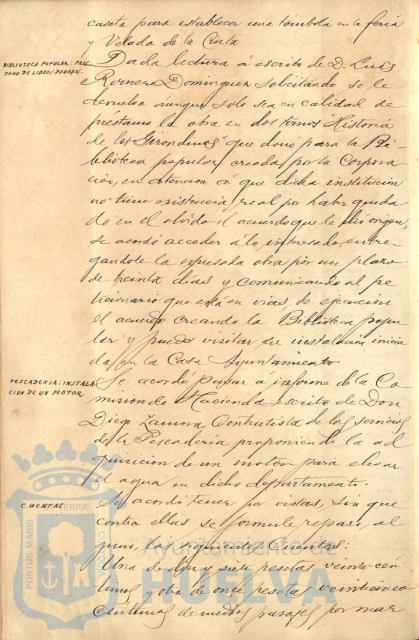 caseta para establecer una tómbola en la feria
y Velada de la Cinta
BIBLIOTECA POPULAR: PRES
TAMO DE LIBROS DONADOS.
Dada lectura á escrito de D. Luis
Romero Dominguez solicitando se le
devuelva aunque solo sea en calidad de
préstamo la obra en dos tomos "Historia
de los Girondinos" que donó para la Bi
blioteca popular creada por la Corpora
ción, en atencion á que dicha institución
no tiene existencia real por haber queda
do en el olvido el acuerdo que le dió origen,
se acordó acceder á lo interesado entre
gándole la expresada obra por un plazo
de treinta dias y comunicando al pe
ticionario que está en vias de ejecucion
el acuerdo creando la Biblioteca popu
lar y puede visitar su instalacion inicia
da en la Casa Ayuntamiento.
PESCADERIA: INSTALA
CION DE UN MOTOR.
Se acordó pasar á informe de la Co
mision de Hacienda escrito de Don
Diego Zamora Contratista de los servicios
de la Pescadería proponiendo la ad
quisicion de un motor para elevar
el agua en dicho departamento.
CUENTAS
Se acordó tener por vistas, sin que
contra ellas se formule reparo al
guno, las siguientes Cuentas:
Una de diez y siete pesetas veinte cen
timos y otra de once pesetas veinticinco
centimos de medios pasajes por mar
PORTUS MARIS ET TERRAE CUSTODIA
Ayuntamiento de
HUELVA